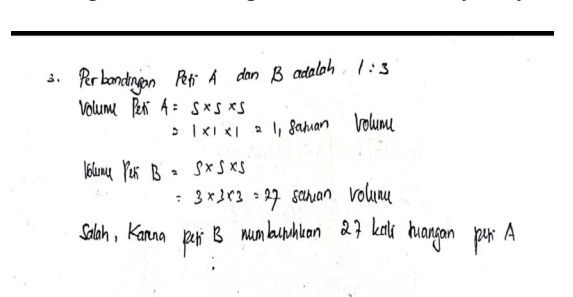 3. Perbandingan Peti A dan B adalah 1:3
Volume Peti A = S x S x S
= 1 x 1 x 1 = 1, Satuan Volume
Volume Peti B = S x S x S
= 3 x 3 x 3 = 27 satuan volume
Salah, Karena peti B membutuhkan 27 kali tuangan peti A